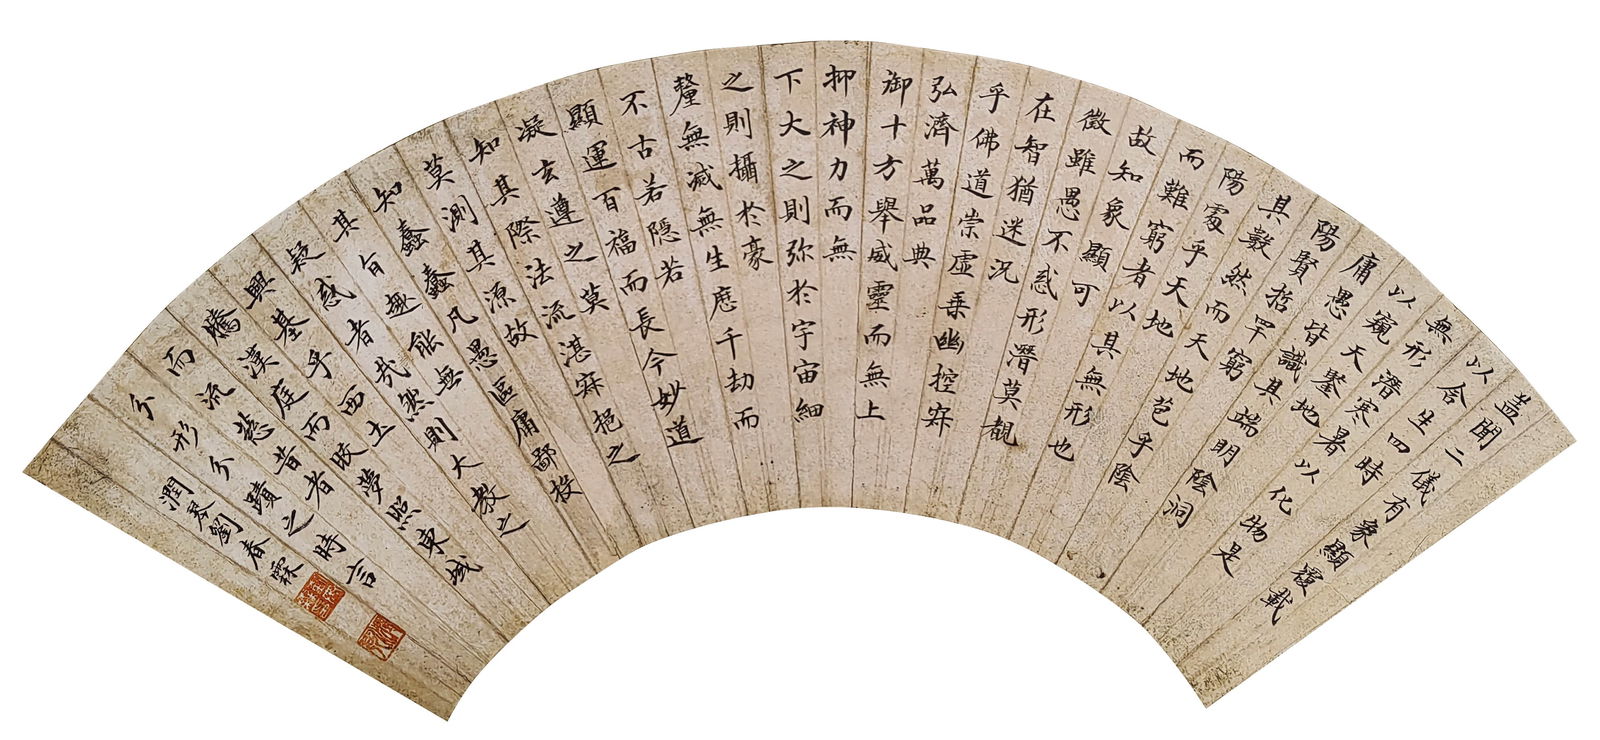 盖聞二儀有象顯覆載
以含生四時
無形潛寒暑以化物是
以窺天鑒地
庸愚皆識其端明陰洞
陽賢哲罕窮
其數然而天地苞乎陰
陽處乎天地
而難窮者以其無形也
故知象顯可
徵雖愚不惑形潛莫覩
在智猶迷況
乎佛道崇虛乗幽控寂
弘濟萬品典
御十方舉威靈而無上
抑神力而無
下大之則弥於宇宙細
之則攝於豪
釐無滅無生歷千劫而
不古若隱若
顯運百福而長今妙道
凝玄遵之莫
知其際法流湛寂挹之
莫測其源故
知蠢蠢凡愚區庸鄙投
其旨趣能無
疑惑者哉然則大教之
興基乎西土
騰漢庭而皎夢照東域
而流慈昔者
分形分蹟之時言
潤琴劉春霖